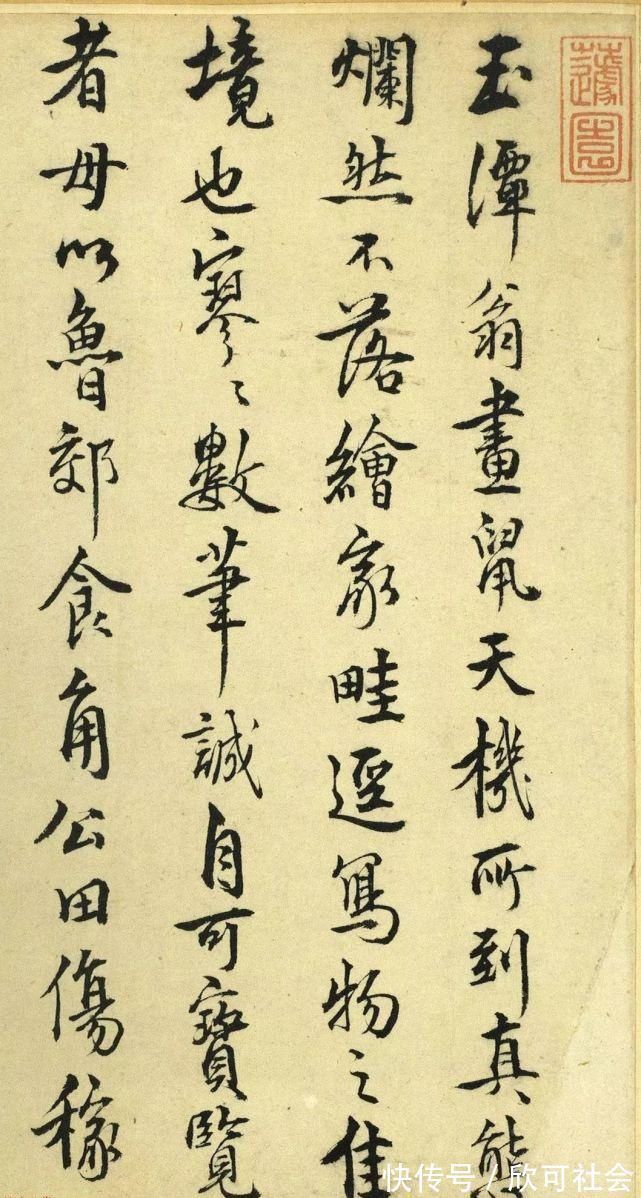 玉潭翁畫鼠天機所到真態
爛然不落繪家畦逕寫物之佳
境也寥〻數筆誠自可寶覽
者毋以魯郊食角公田傷稼
蘧園
快传号/欣可社会